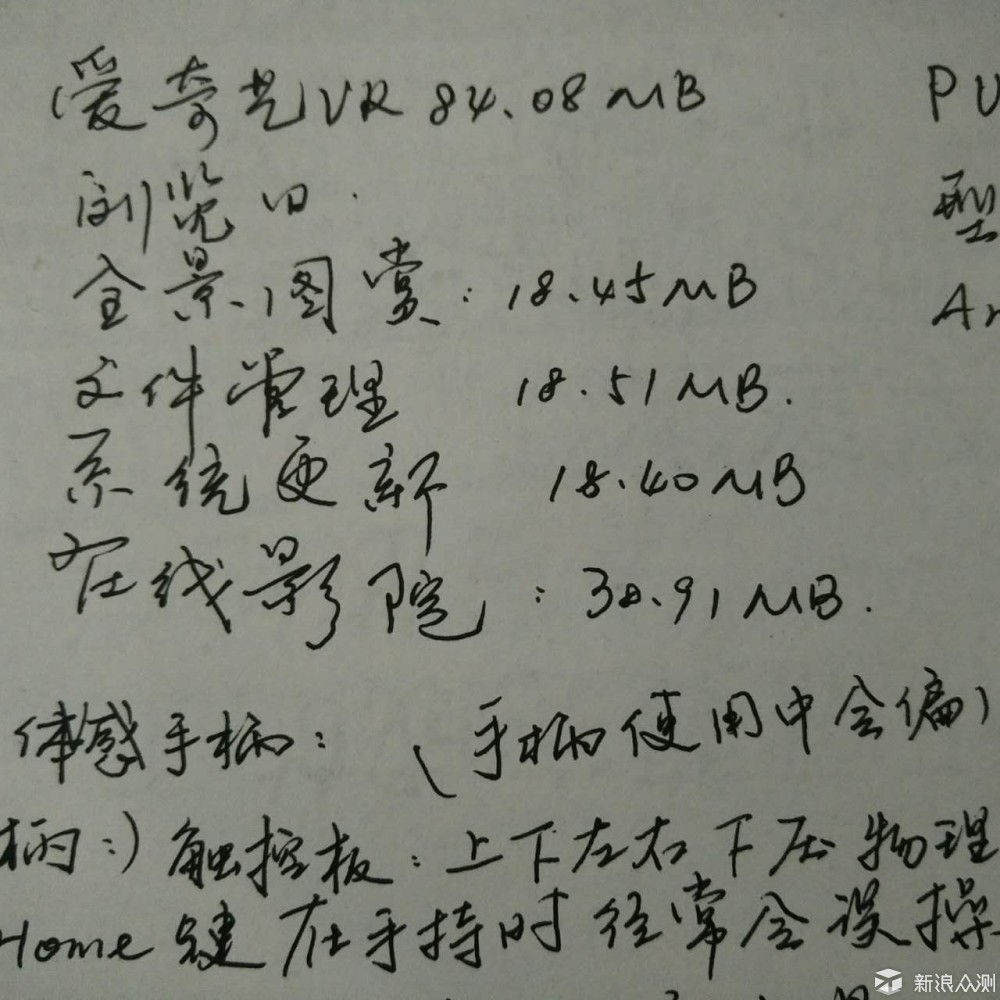 爱奇艺VR 84.08MB PU
浏览口.
型
全景图赏: 18.45MB
文件管理 18.51MB.
系统更新 18.40MB
在线影院: 38.91MB.
体感手柄: (手柄使用中会偏
柄:) 触控板: 上下左右下压物理
Home键在手持时经常会误操
新浪众测